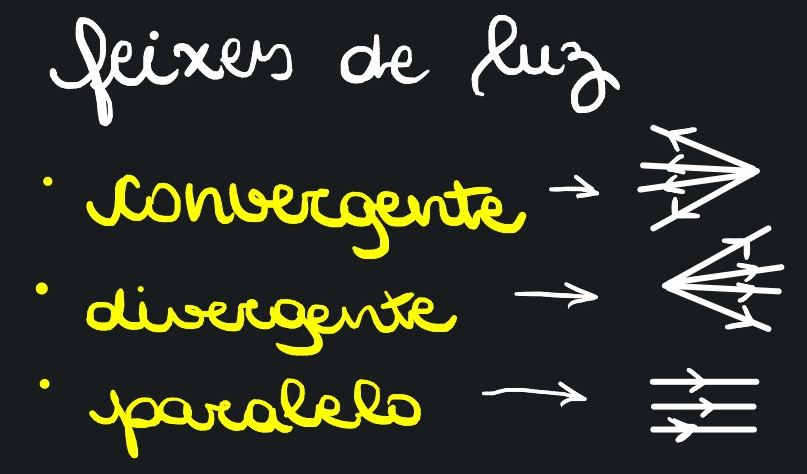 feixes de luz
• convergente →
• divergente →
• paralelo →